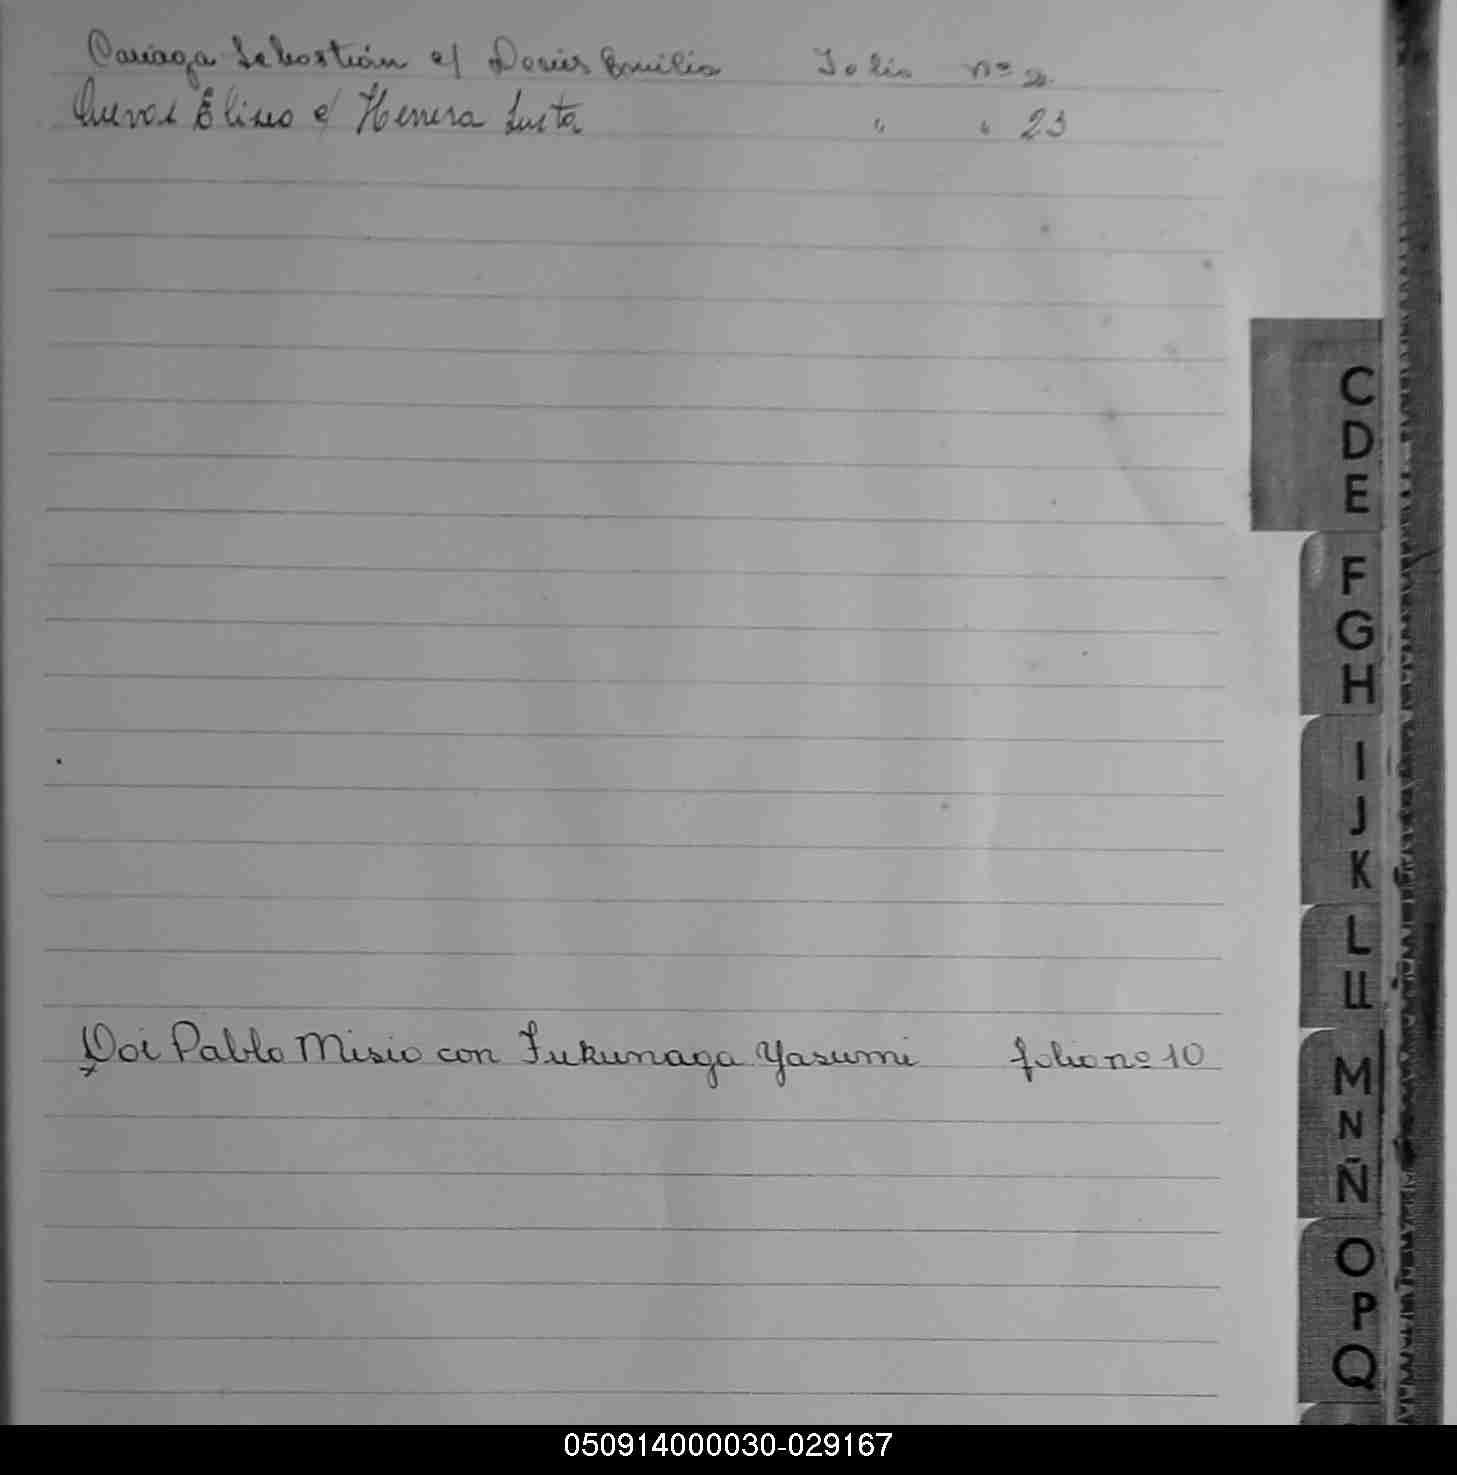 Cariaga Sebastián c/ Emilia Folio nº 2
Cuevas Eliseo c/ Herrera Justa " " 23
Doi Pablo Misio con Fukunaga Yasumi folio nº 10
C
D
E
F
G
H
I
J
K
L
LL
M
N
Ñ
O
P
Q
050914000030-029167